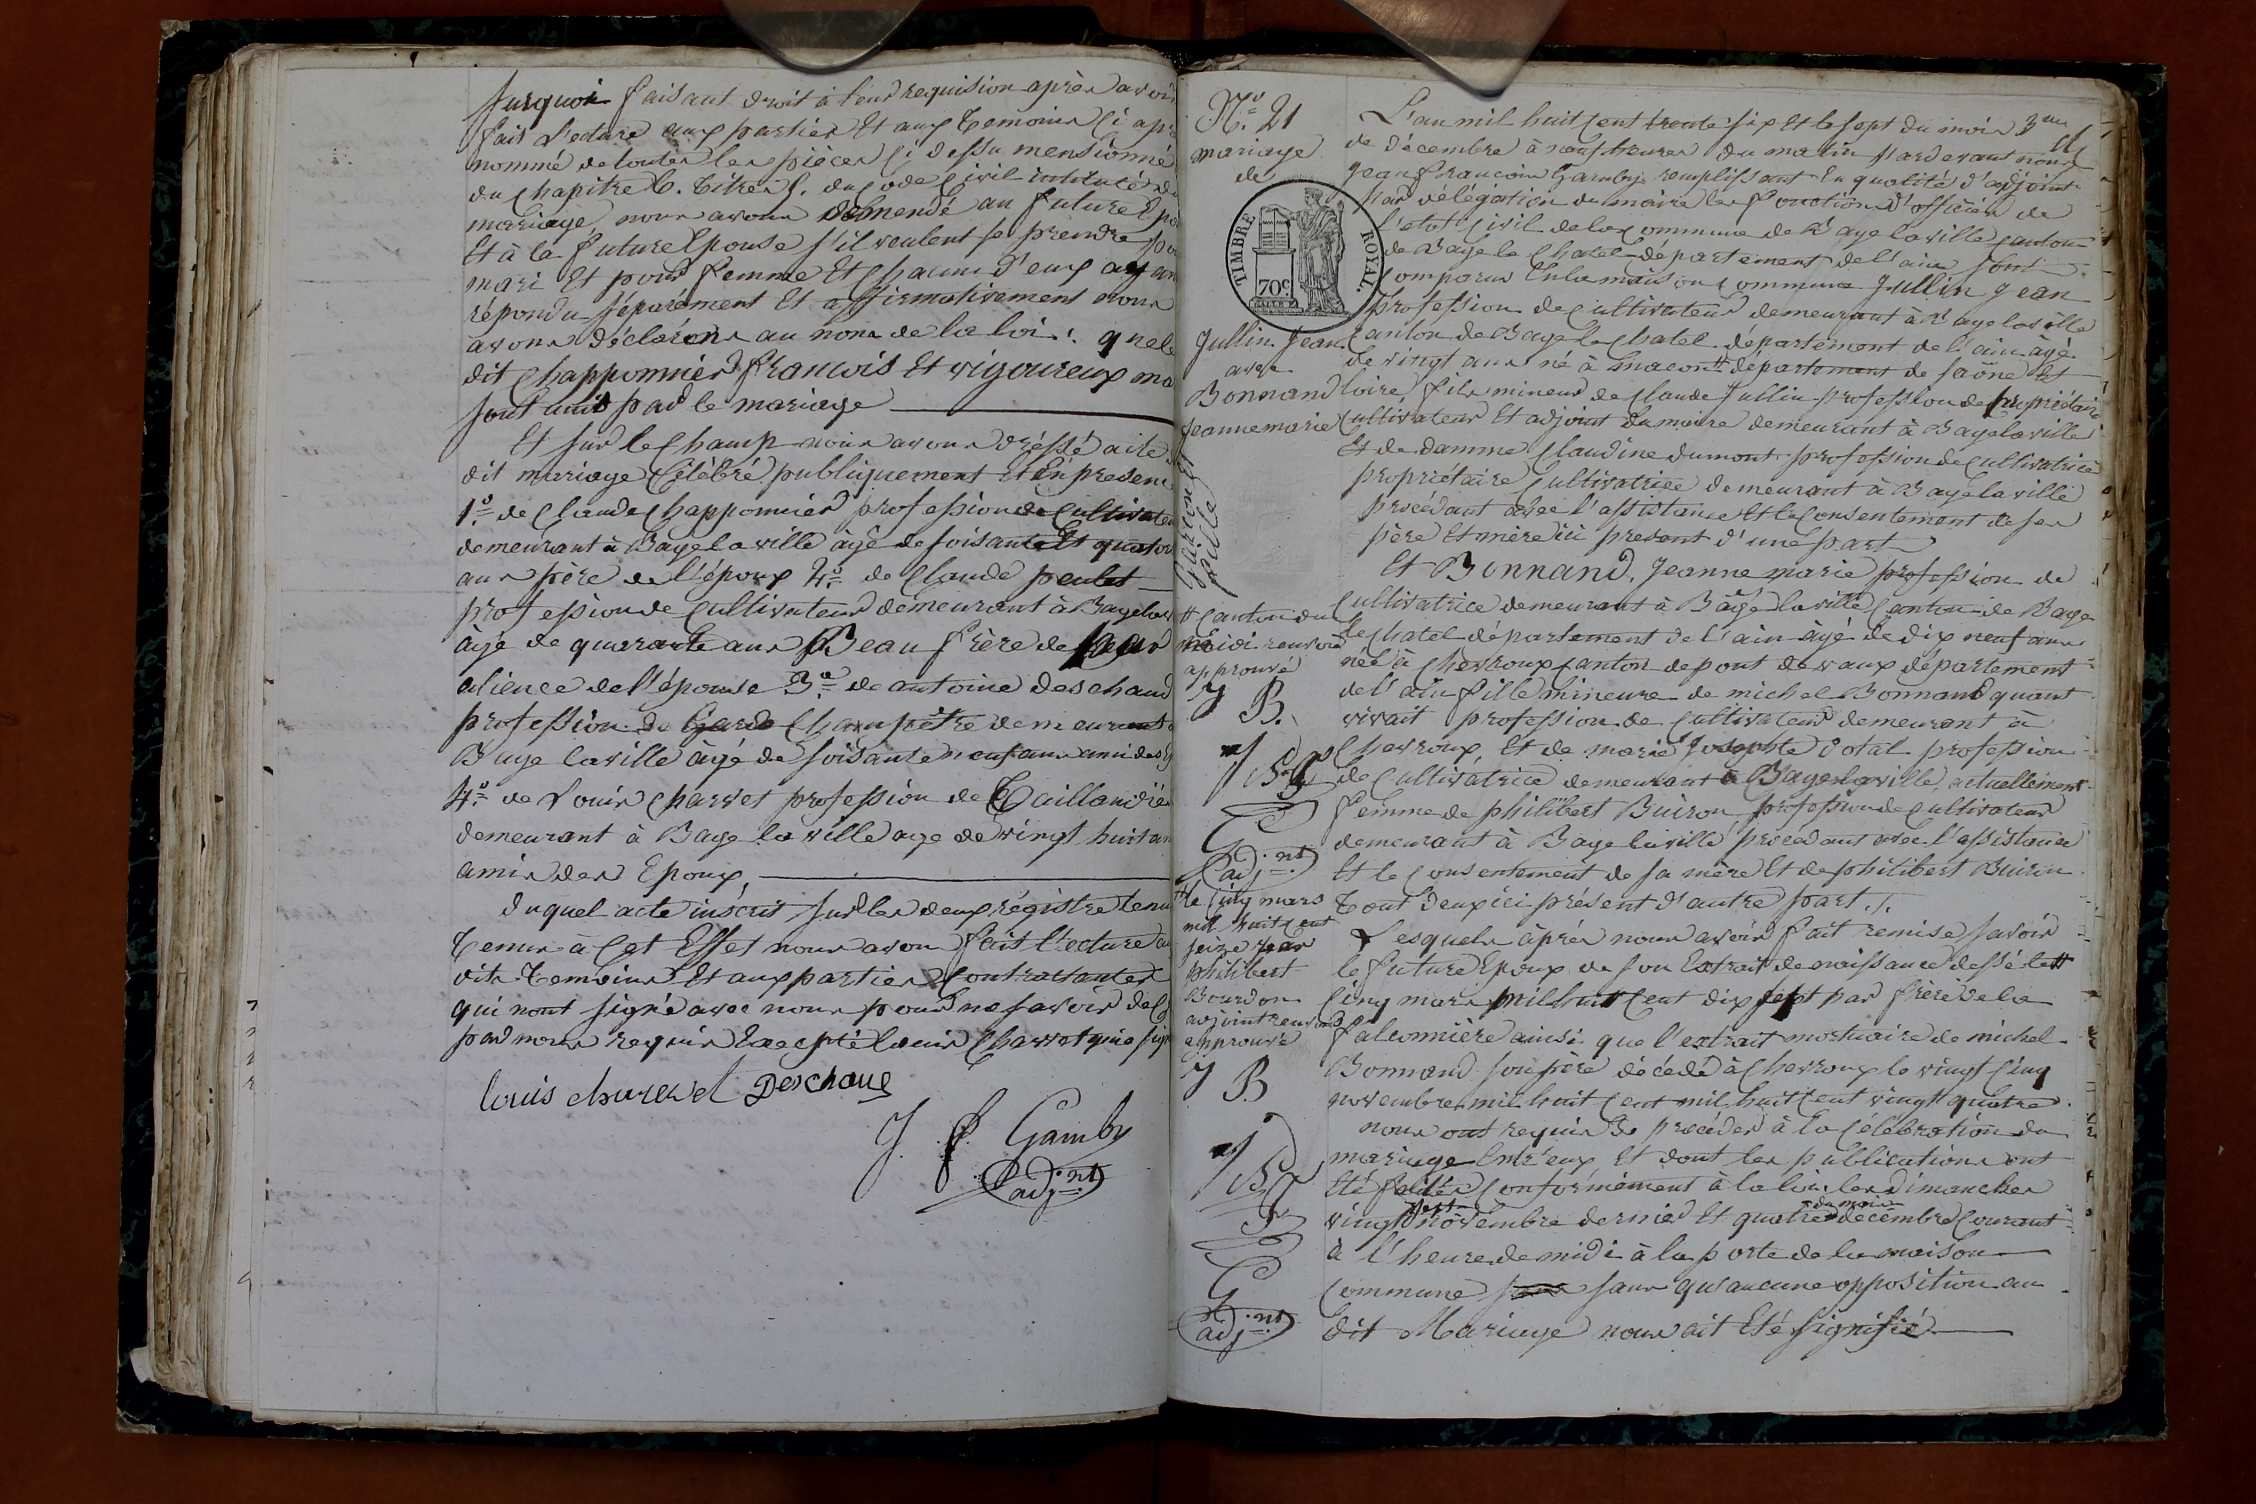 surquoi faisant droit à leur requision après avoir
fait l'ecture aux parties Et aux temoins ci apr
nommé de toutes les pièces ci dessu mensionné
du chapitre 6. titre 5. du code civil intitulé du
mariage, nous avons demendé au future Epo
Et à la future Epouse s'il veulent se prendre po
mari Et pour femme Et chacun d'eux ayan
répondu séparément Et affirmativement nous
avons déclarons au nom de la loi : que le
dit Chapponnier François Et vigoureux ma
sont unis par le mariage
Et sur le champ nous avons dréssé acte
dit mariage Célébré publiquement Et En presenc
1.º de Claude Chapponnier profession de Cultivateu
demeurant à Bage la ville âgé de soisante Et quator
ans père de l'époux 2.º de Claude
profession de Cultivateur demeurant à Bage la v
âgé de quarante ans Beau frère de
alience de l'épouse 3.º de antoine Deschaud
profession de Garde Champêtre demeurant à
Bage la ville âgé de soisante neuf ans ami des
4.º de Louis Charvet profession de Taillandié
demeurant à Bage la ville age de vingt huit an
amis des Epoux,
duquel acte inscrit sur les deux régistre tenu
tenus à Cet Effet nous avon fait l'ecture au
dits temoins Et aux parties Contractantes
qui nont signé avec nous pour ne savoir de ce
par nous requis Excepté Louis Charvet qui a sign
louis charvet Deschaux
J. f. Gamby
adj.nt
N.º 21
mariage
de
TIMBRE ROYAL.
70c
Jullin Jean
avec
Bonnand
Jeanne marie
Garçon Et
fille
# canton du
midi renvoi
approuvé
J B.
G
adj.nt
# le cinq mars
mil huit cent
seize
philibert
Bourdon
adjoint renvoi
approuvé
J B
G
adj.nt
L'an mil huit cent trente six Et le sept du mois
de décembre à neuf heures du matin pardevant nous
jean François Gamby remplissant En qualité d'adjoint
par délégation du maire les fonctions d'officier de
l'etat Civil de la commune de Bage la ville canton
de Bage le Chatel département de l'ain sont
comparus En la maison commune Jullin Jean
profession de Cultivateur demeurant à Bage la ville
canton de Bage le Chatel département de l'ain âgé
de vingt ans né à macon # département de saône Et
loire, fils mineur de Claude Jullin profession de propriétaire
Cultivateur Et adjoint du maire demeurant à Bage la ville
Et de damme Claudine dumont profession de Cultivatrice
propriétaire Cultivatrice demeurant à Bage la ville
procédant avec l'assistance Et le Consentement de ses
père Et mère ici present d'une part
Et Bonnand. Jeanne marie profession de
Cultivatrice demeurant à Bâgé la ville Canton de Bage
le Chatel département de l'ain âgé de dix neuf ans
née à Chevroux Canton de pont de vaux département
de l'ain fille mineure de michel Bonnand quant
vivait profession de Cultivateur demeurant à
Chevroux, Et de marie Josephte Votal profession
de Cultivatrice demeurant à Bage la ville, actuellement
femme de philibert Buiron profession de Cultivateur
demeurant à Bage la ville procédant avec l'assistance
Et le Consentement de sa mère Et de philibert Buiron
tout deux ici présent d'autre part ./.
Lesquels après nous avoir fait remise savoir
le future Epoux de son Extrait de naissance dessé le #
cinq mars mil huit cent dix sept par frère de la
falconnière ainsi que l'extrait mortuaire de michel
Bonnand son père décédé à Chevroux le vingt cinq
novembre mil huit cent mil huit cent vingt quatre
nous ont requis de procéder à la célébration du
mariage Entr'eux, Et dont les publications ont
Eté faites conformément à la loi les dimanches
sept du mois
vingt novembre dernier Et quatre décembre courant
à l'heure de midi à la porte de la maison
commune sans sans qu'aucune opposition au
dit Mariage nous ait Eté signifié